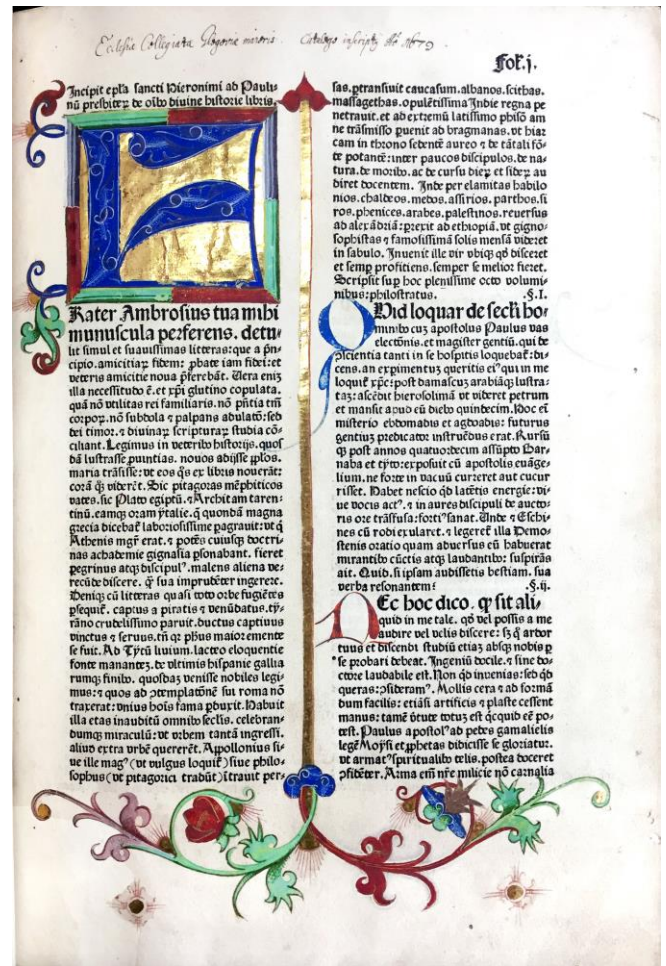 Ecclesiæ Collegiatæ Glogoviæ maioris. Catalogo inscriptus
Fol. j.
Incipit epl̃a sancti Hieronimi ad Pauli-
nũ presbiterꝝ de oĩbꝰ diuine historie libris.
Frater Ambrosius tua mihi
munuscula perferens. detu-
lit simul et suauissimas litteras: que a pñ-
cipio. amicitiaꝝ fidem: ꝓbate iam fidei: et
veteris amicitie noua ꝓferebãt. Vera eniʒ
illa necessitudo ẽ. et xp̃i glutino copulata.
quã nõ vtilitas rei familiaris. nõ pñtia tm̃
corpoꝝ. nõ subdola ⁊ palpans adulatõ: sed
dei timor. ⁊ diuinaꝝ scripturaꝝ studia cõ-
ciliant. Legimus in veteribꝰ historijs. quos
dã lustrasse ꝓuintias. nouos adijsse ꝓplos.
maria trãsisse: vt eos q̃s ex libris nouerãt:
corã qꝫ viderẽt. Sic pitagoras mẽphiticos
vates. sic Plato egiptũ. ⁊ Architam taren-
tinũ. eamqꝫ oram ytalie. q̃ quondã magna
grecia dicebat᷑ laboriosissime ꝑagrauit: vt q̃
Athenis mgr̃ erat. ⁊ potẽs cuiusqꝫ doctri-
nas achademie gignasia ꝑsonabant. fieret
ꝑegrinus atqꝫ discipulꝰ. malens aliena ve-
recũde discere. q̃ sua imprudẽter ingerere.
Deniqꝫ cũ litteras quasi toto orbe fugiẽtes
ꝑsequit᷑. captus a piratis ⁊ venũdatus. ty-
rãno crudelissimo paruit. ductus captiuus
vinctus ⁊ seruus. tñ qꝛ ph̃us maior emente
se fuit. Ad Tytũ liuium. lacteo eloquentie
fonte manantẽ. de vltimis hispanie gallia
rumqꝫ finibꝰ. quosdaʒ venisse nobiles legi-
mus: ⁊ quos ad ꝯtemplatõnẽ sui roma nõ
traxerat: vnius hoĩs fama ꝑduxit. Habuit
illa etas inauditũ omnibꝰ seclis. celebran-
dumqꝫ miraculũ: vt vrbem tantã ingressi.
aliud extra vrbẽ quererẽt. Appollonius si-
ue ille magꝰ (vt vulgus loquit᷑) siue philo-
sophus (vt pitagorici tradũt) ĩtrauit per-
sas. ꝑtransiuit caucasum. albanos. scithas.
massagethas. opulẽtissima Indie regna pe
netrauit. et ad extremũ latissimo phisõ am
ne trãsmisso ꝑuenit ad bragmanas. vt hiar
cam in throno sedentẽ aureo ⁊ de tãtali fõ-
te potantẽ: inter paucos discipulos. de na-
tura. de moribꝰ. ac de cursu dieꝝ et sideꝝ au
diret docentem. Inde per elamitas babilo
nios. chaldeos. medos. assirios. parthos. si
ros. phenices. arabes. palestinos. reuersus
ad alexãdriã: ꝑrexit ad ethiopiã. vt gigno-
sophistas ⁊ famosissimã solis mensã videret
in sabulo. Inuenit ille vir vbiqꝫ qđ disceret
et semꝑ proficiens. semper se melior fieret.
Scripsit suꝑ hoc plenissime octo volumi-
nibus: philostratus. .§. I.
Quid loquar de secl̃i ho-
minibꝰ cuʒ apostolus Paulus vas
electõnis. et magister gentiũ. qui de
ꝯscientia tanti in se hospitis loquebat᷑: di-
cens. an expimentuʒ queritis eiꝰ qui in me
loquit᷑ xp̃c: post damascuʒ arabiãqꝫ lustra-
taʒ: ascẽdit hierosolimã vt videret petrum
et mansit apud eũ diebꝰ quindecim. Hoc em̃
misterio ebdomadis et agdoadis: futurus
gentiuʒ predicator instruẽdus erat. Rursũ
qꝫ post annos quatuordecim assũpto Bar-
naba et tyto: exposuit cũ apostolis euãge-
lium. ne forte in vacuũ curreret aut cucur
risset. Habet nescio qđ latẽtis energie: vi-
ue vocis actꝰ. ⁊ in aures discipuli de aucto-
ris ore trãsfusa: fortiꝰ sanat. Unde ⁊ Eschi-
nes cũ rodi exularet. ⁊ legeret᷑ illa Demo-
stenis oratio quam aduersus eũ habuerat
mirantibꝰ cũctis atqꝫ laudantibꝰ: suspirãs
ait. Quid. si ipsam audissetis bestiam. sua
verba resonantem? .§. ij.
Nec hoc dico. qꝫ sit ali-
quid in me tale. qđ vel possis a me
audire vel velis discere: sʒ qꝫ ardor
tuus et discendi studiũ etiaʒ absqꝫ nobis ꝑ
se probari debeat. Ingeniũ docile. ⁊ sine do-
ctore laudabile est. Non qđ inuenias: sed qđ
queras: ꝯsideramꝰ. Mollis cera ⁊ ad formã
dum facilis: etiãsi artificis ⁊ plaste cessent
manus: tamẽ virtute totuʒ est quicquid eẽ po-
test. Paulus apostolꝰ ad pedes gamalielis
legẽ Moysi et ꝓphetas didicisse se gloriatur.
vt armatꝰ spiritualibꝰ telis. postea doceret
ꝯfidẽter. Arma em̃ nr̃e milicie nõ carnalia